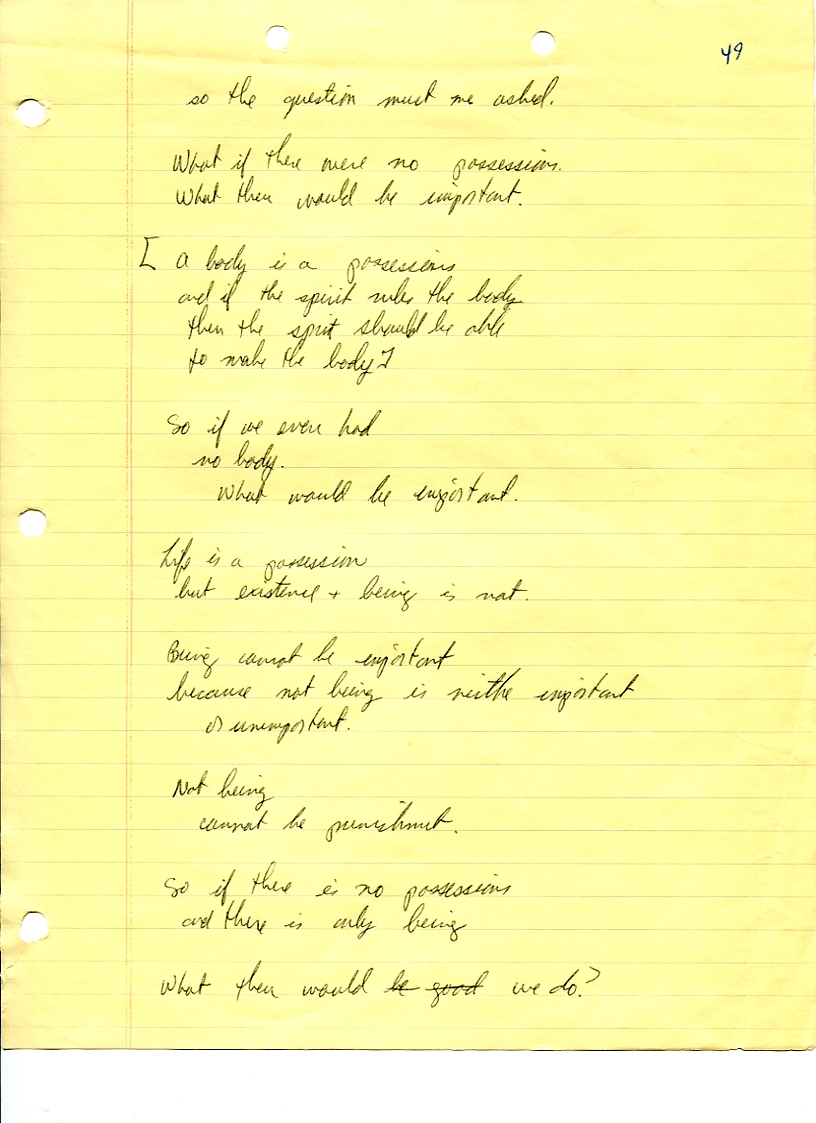 49
so the question must me asked.
What if there were no possessions.
What then would be important.
[ a body is a possessions
and if the spirit rules the body
then the spirit should be able
to make the body]
So if we even had
no body.
What would be important.
Life is a possession
but existence + being is not.
Being cannot be important
because not being is neithe important
or unimportant.
Not being
cannot be punishment.
So if there is no possessions
and there is only being
What then would be good we do?